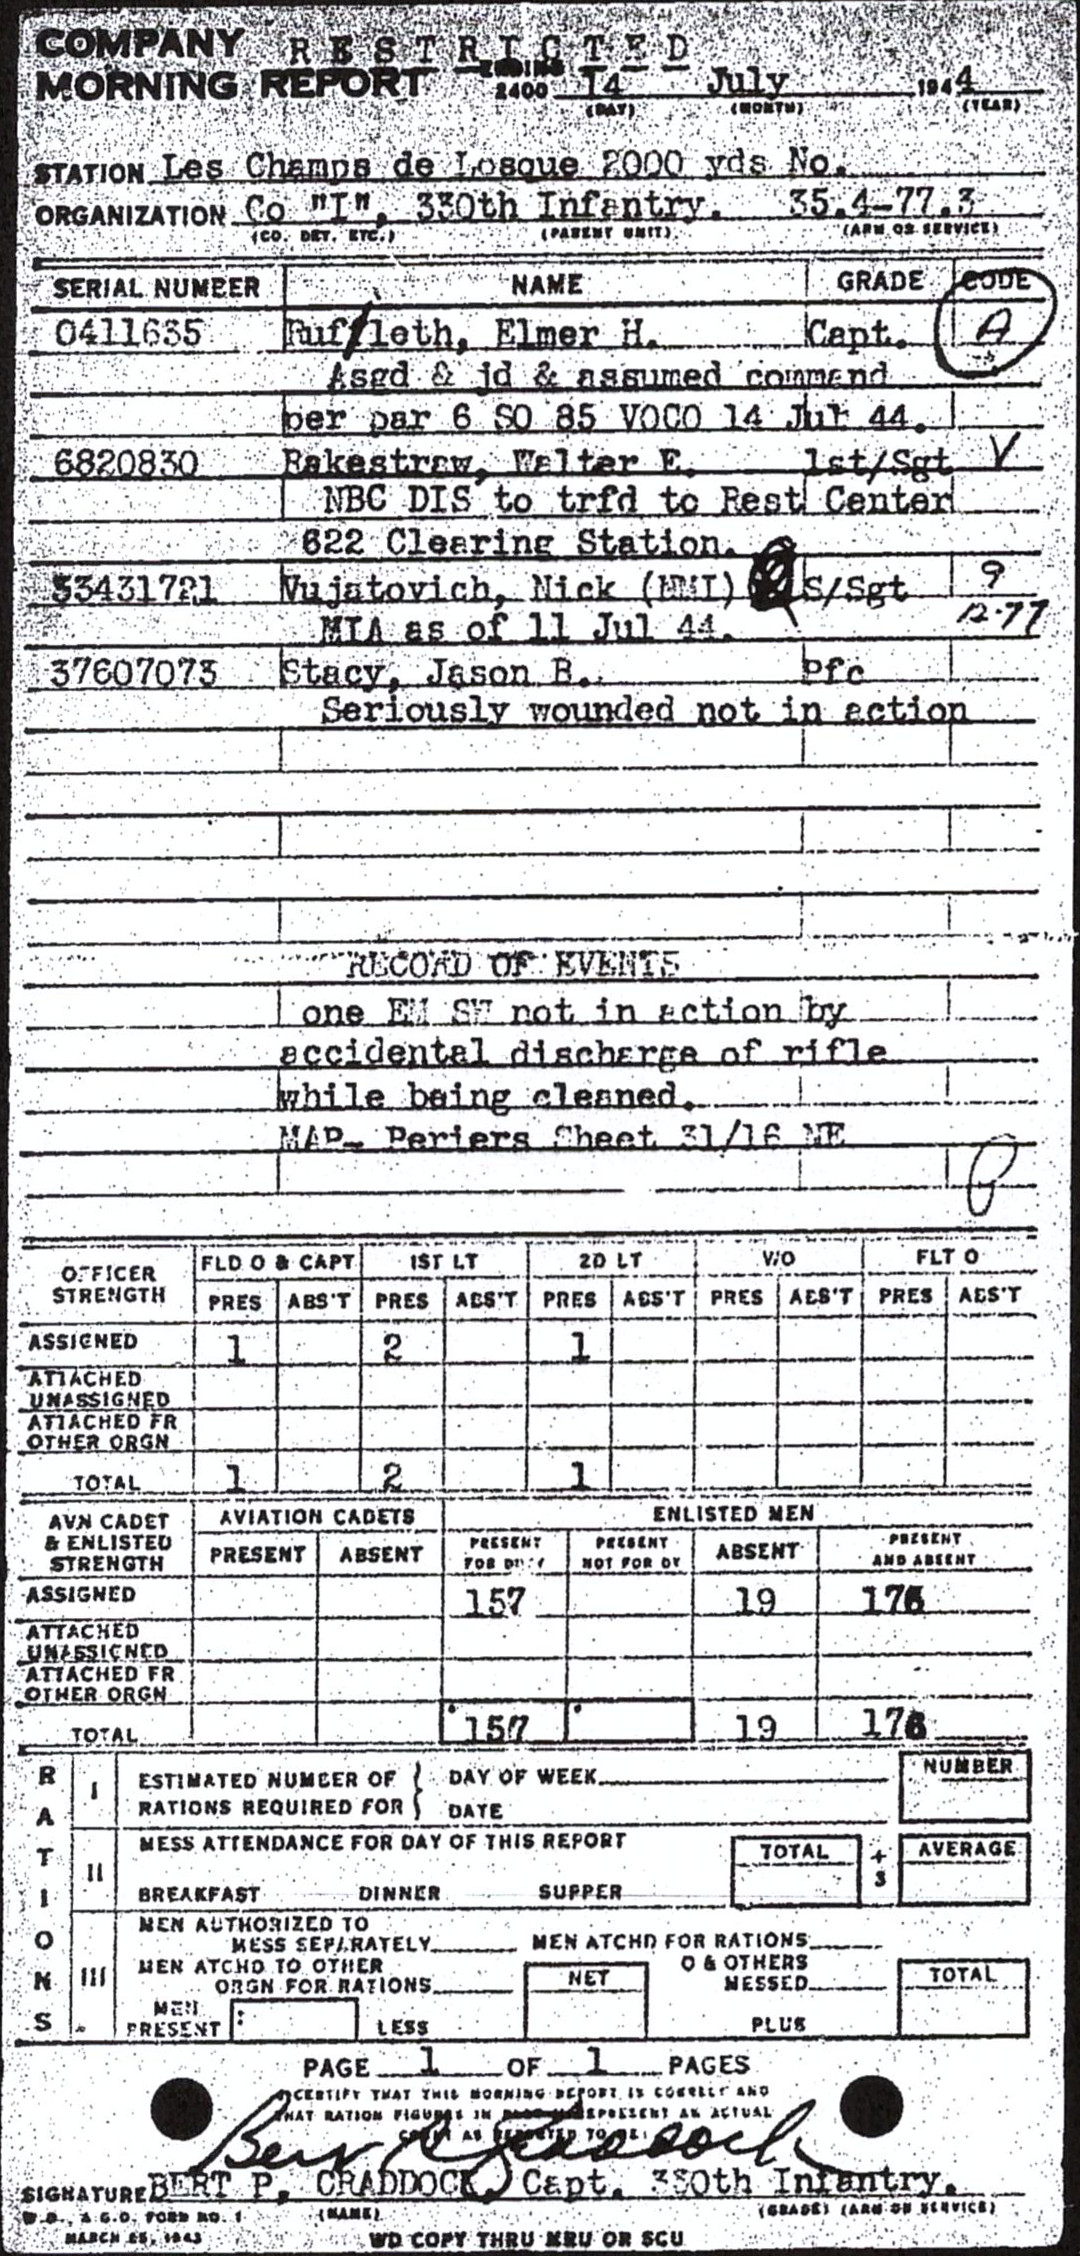 COMPANY RESTRICTED
MORNING REPORT ENDING 2400 14 July 1944
(DAY) (MONTH) (YEAR)
STATION Les Champs de Losque 2000 yds No.
ORGANIZATION Co "I", 330th Infantry. 35.4-77.3
(CO. DET. ETC.) (PARENT UNIT) (ARM OR SERVICE)
SERIAL NUMBER NAME GRADE CODE
0411635 Elmer H. Capt. A
Asgd & jd & assumed command
per par 6 SO 85 VOCO 14 Jul 44.
6820830 Rakestraw, Walter E. 1st/Sgt V
NBC DIS to trfd to Rest Center
622 Clearing Station.
33431721 Vujatovich, Nick (NMI) S/Sgt 9
MIA as of 11 Jul 44. 12-77
37607073 Stacy, Jason B. Pfc
Seriously wounded not in action
RECORD OF EVENTS
one EM SW not in action by
accidental discharge of rifle
while being cleaned.
MAP- Periers Sheet 31/16 NE
OFFICER STRENGTH FLD O & CAPT 1ST LT 2D LT W/O FLT O
PRES ABS'T PRES ABS'T PRES ABS'T PRES ABS'T PRES ABS'T
ASSIGNED 1 2 1
ATTACHED UNASSIGNED
ATTACHED FR OTHER ORGN
TOTAL 1 2 1
AVN CADET & ENLISTED STRENGTH AVIATION CADETS ENLISTED MEN
PRESENT ABSENT PRESENT FOR DUTY PRESENT NOT FOR DY ABSENT PRESENT AND ABSENT
ASSIGNED 157 19 176
ATTACHED UNASSIGNED
ATTACHED FR OTHER ORGN
TOTAL 157 19 176
RATIONS
I ESTIMATED NUMBER OF RATIONS REQUIRED FOR DAY OF WEEK NUMBER
DATE
II MESS ATTENDANCE FOR DAY OF THIS REPORT TOTAL ÷ 3 AVERAGE
BREAKFAST DINNER SUPPER
III MEN AUTHORIZED TO MESS SEPARATELY MEN ATCHD FOR RATIONS
MEN ATCHD TO OTHER ORGN FOR RATIONS NET O & OTHERS MESSED TOTAL
MEN PRESENT LESS PLUS
PAGE 1 OF 1 PAGES
I CERTIFY THAT THIS MORNING REPORT IS CORRECT AND
THAT RATION FIGURES IN REPRESENT AN ACTUAL
COUNT AS REPORTED TO ME:
Bert P Craddock
SIGNATURE BERT P. CRADDOCK, Capt. 330th Infantry.
(NAME) (GRADE) (ARM OR SERVICE)
W.D., A.G.O. FORM NO. 1
MARCH 25, 1943 WD COPY THRU MRU OR SCU